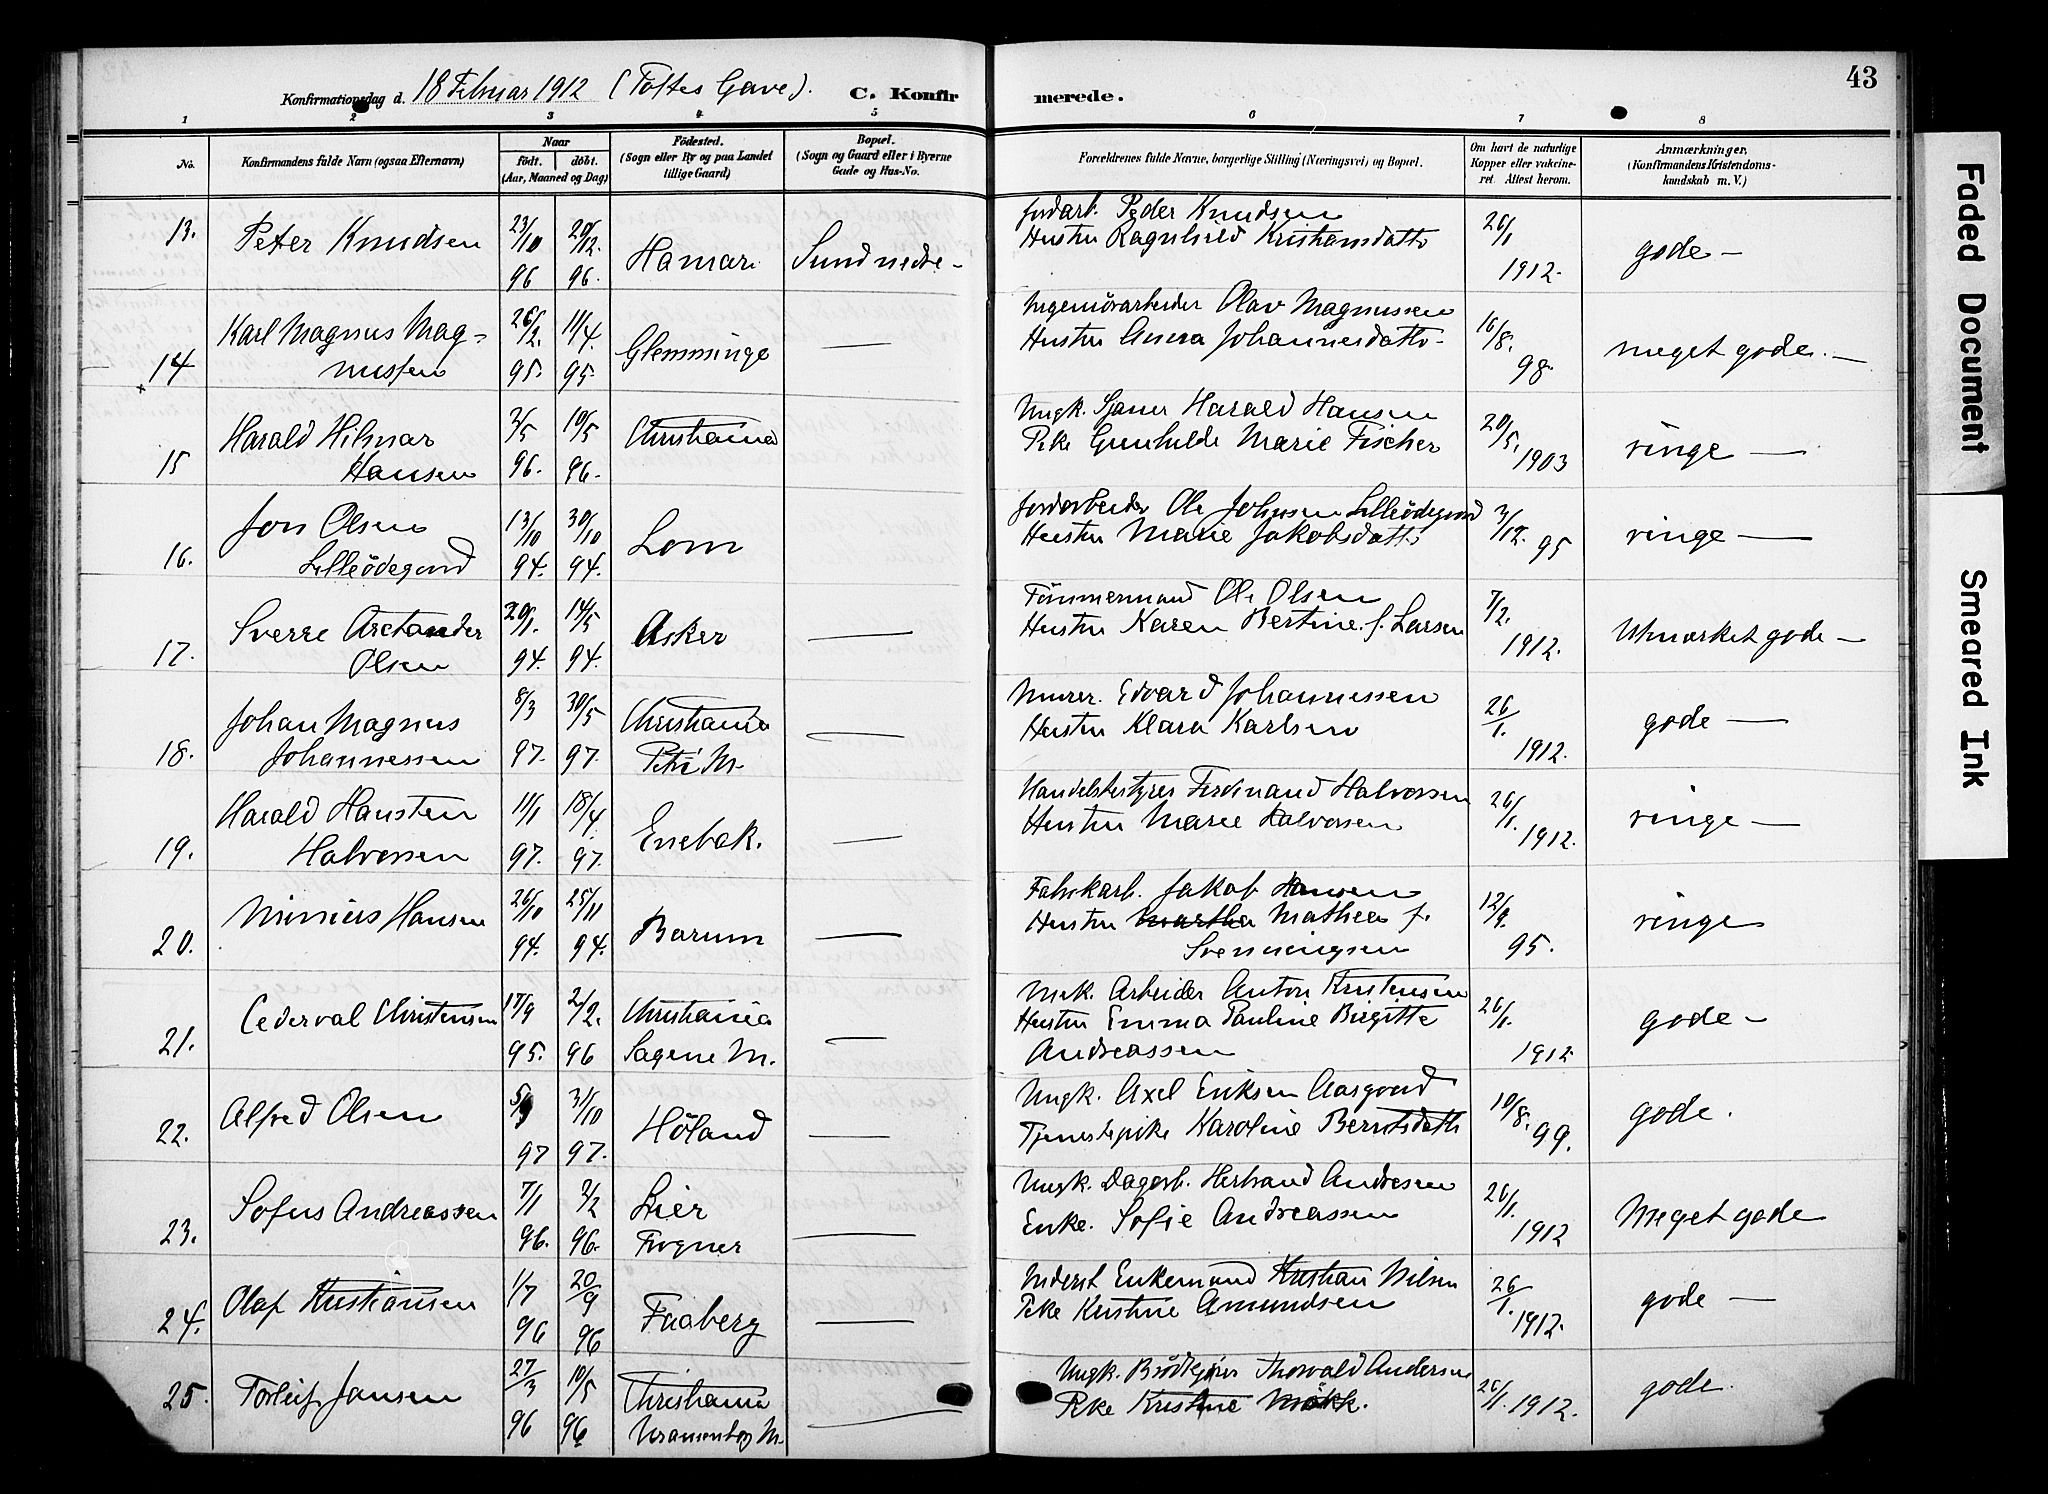 43
Konfirmationsdag d. 18 Februar 1912 (Toftes Gave). C. Konfirmerede.
1 2 3 4 5 6 7 8
No. Konfirmandens fulde Navn (ogsaa Efternavn) Naar født. døbt. (Aar, Maaned og Dag) Fødested. (Sogn eller By og paa Landet tillige Gaard) Bopæl. (Sogn og Gaard eller i Byerne Gade og Hus-No. Forældrenes fulde Navne, borgerlige Stilling (Næringsvei) og Bopæl. Om havt de naturlige Kopper eller vaccineret. Attest herom. Anmærkninger, (Konfirmandens Kristendomskundskab m. V.)
13. Peter Knudsen 23/10 96 29/12. 96. Hamar Sundnedre -
Jordarb. Peder Knudsen
Hustru Ragnhild Kristiansdatte 26/1 1912. gode —
14 Karl Magnus Magnussen 26/2. 95. 11/4. 95. Glemminge —
Ingeniørarbeider Olav Magnussen
Hustru Anna Johannesdatte 16/8. 98. meget gode. —
15 Harald Hilmar Hansen 3/5 96. 10/5 96. Christiania
Ungk. Sjauer Harald Hansen
Pike Gunhilde Marie Fischer 20/5. 1903 ringe —
16. Jon Olsen Lilleødegaard 13/10 94. 30/10 94. Lom
Jordarbeider Ole Johnsen Lilleødegaard
Hustru Marie Jakobsdatte 3/12. 95 ringe —
17. Sverre Olsen 20/1. 94. 14/5 94. Asker —
Tømmermand Ole Olsen
Hustru Karen Bertine f. Larsen 7/2. 1912. Utmærket gode —
18. Johan Magnus Johannessen 8/3 97. 30/5 97. Christiania Petri M. —
Murer. Edvard Johannessen
Hustru Klara Karlsen 26/1. 1912. gode —
19. Harald Hansten Halvorsen 11/1 97. 18/4 97. Enebak. —
Handelsbestyrer Ferdinand Halvorsen
Hustru Marie Halvorsen 26/1. 1912. ringe —
20. Hansen 26/10 94. 25/11 94. Bærum —
Fabrikarb. Jakob Hansen
Hustru Martha Mathea f.
Svenningsen 12/9. 95. ringe
21. Cederval Christensen 17/9 95. 2/2. 96 Christiania Sagene M. —
Mek. Arbeider Anton Kristensen
Hustru Emma Pauline Birgitte
Andreassen 26/1. 1912 gode —
22. Alfred Olsen 5/9 97 31/10 97. Høland —
Ungk. Axel Eriksen Aasgaard
Tjenestepike Karoline Berntsdatte 10/8. 99. gode.
23. Sofus Andreassen 7/1 96. 2/2 96. Lier Frogner —
Ungk. Dagarb. Herbrand Andresen
Enke. Sofie Andreassen 26/1. 1912 Meget gode
24. Olaf Kristiansen 1/7 96 20/9 96 Faaberg —
Inderst Enkemand Kristian Nilsen
Pike Kristine Amundsen 26/1. 1912. gode —
25. Torleif Jansen 27/3 96 10/5 96 Christiania Uranienborg M. —
Ungk. Brødkjører Thorvald Andersen
Pike Kristine Mökk. 26/1. 1912. gode.
Faded Document
Smeared Ink